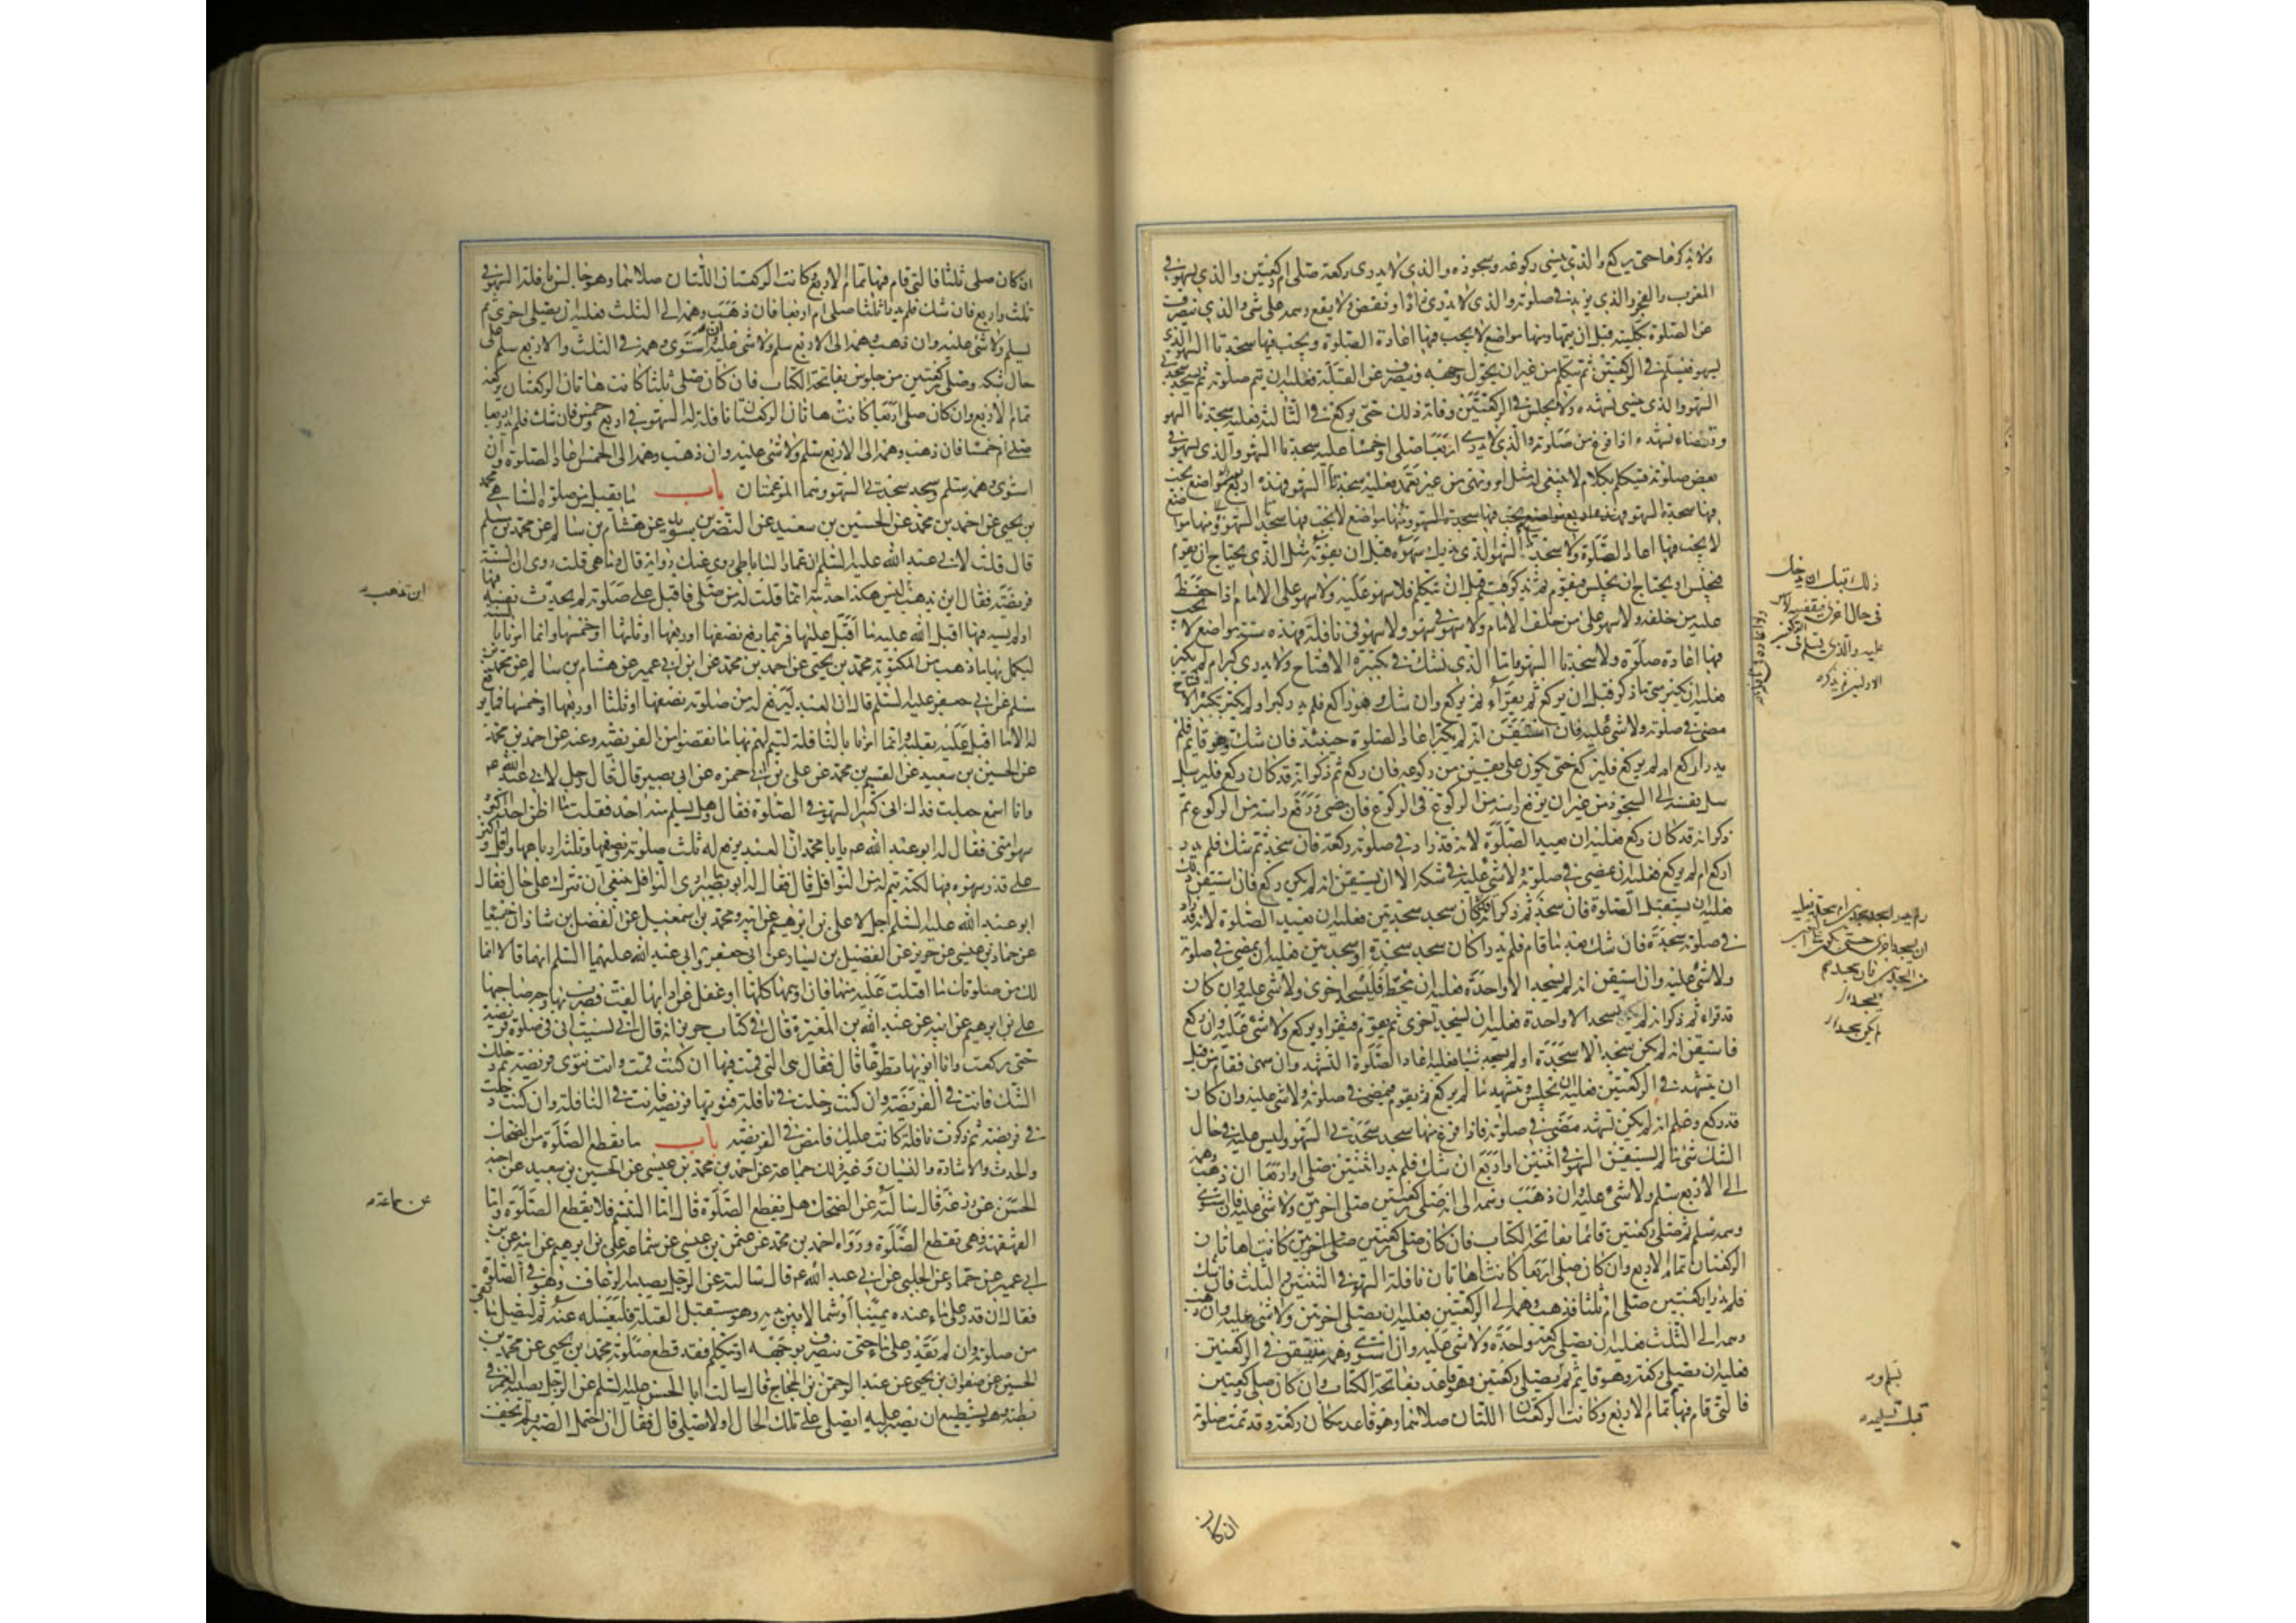 ولا يذكرها حتى يركع والذي ينسى ركوعه وسجوده والذي لا يدرى ركعة صلى ام ركعتين والذي يسهو في
المغرب والفجر والذي يزيد في صلوته والذي لا يدرى زاد او نقص ولا يقع وهمه على شئ والذي ينصرف
عن الصلوة بكليته قبل ان يتمها ومنها مواضع لا يجب فيها اعادة الصلوة ويجب فيها سجدتا السهو الذي
يسهو فيسلم في الركعتين ثم يتكلم من غير ان يحول وجهه وينصرف عن القبلة فعليه ان يتم صلوته ثم يسجد سجدتي
السهو والذي ينسى تشهده ولا يجلس في الركعتين وفاته ذلك حتى يركع في الثالثة فعليه سجدتا السهو
وقضاء تشهده اذا فرغ من صلوته والذي لا يدرى اربعا صلى او خمسا عليه سجدتا السهو والذي يسهو في
بعض صلوته فيتكلم بكلام لا ينبغي له مثل امر ونهى من غير تعمد فعليه سجدتا السهو فهذه اربع مواضع يجب
فيها سجدتا السهو ومنها مواضع لا يجب فيها سجدتا السهو ومنها مواضع
لا يجب فيها اعادة الصلوة ولا سجدتا السهو الذي يدرك سهوه قبل ان يفوته مثل الذي يحتاج ان يقوم
فيجلس او يحتاج ان يجلس فيقوم ثم يذكر فيتم قبل ان يتكلم فلا سهو عليه ولا سهو على الامام اذا حفظ
عليه من خلفه ولا سهو على من خلف الامام ولا سهو في سهو ولا سهو في نافلة فهذه ستة مواضع لا يجب
فيها اعادة صلوة ولا سجدتا السهو فاما الذي يشك في تكبيرة الافتتاح ولا يدرى كبر ام لم يكبر
فعليه ان يكبر متى ما ذكر قبل ان يركع ثم يقرأ ثم يركع وان شك وهو راكع فلم يدر كبر او لم يكبر تكبيرة الافتتاح
مضى في صلوته ولا شئ عليه فان استيقن انه لم يكبر اعاد الصلوة حينئذ فان شك وهو قائم فلم
يدر اركع ام لم يركع فليركع حتى يكون على يقين من ركوعه فان ركع ثم ذكر انه قد كان ركع فليرسل
نفسه الى السجود من غير ان يرفع راسه من الركوع في الركوع فان مضى ورفع راسه من الركوع ثم
ذكر انه قد كان ركع فعليه ان يعيد الصلوة لانه قد زاد في صلوته ركعة فان سجد ثم شك فلم يدر
اركع ام لم يركع فعليه ان يمضى في صلوته ولا شئ عليه في شكه الا ان يستيقن انه لم يكن ركع فان استيقن ذلك
فعليه ان يستقبل الصلوة فان سجد ثم ذكر انه كان سجد سجدتين فعليه ان يعيد الصلوة لانه قد زاد
في صلوته سجدة فان شك بعد ما قام فلم يدر اكان سجد سجدة او سجدتين فعليه ان يمضى في صلوته
ولا شئ عليه وان استيقن انه لم يسجد الا واحدة فعليه ان ينحط فليسجد اخرى ولا شئ عليه وان كان
قد قراء ثم ذكر انه لم يسجد الا واحدة فعليه ان يسجد اخرى ثم يقوم فيقرأ ويركع ولا شئ عليه وان ركع
فاستيقن انه لم يكن سجد الا سجدة او لم يسجد شيئا فعليه اعادة الصلوة التشهد وان سهى فقام من قبل
ان يتشهد في الركعتين فعليه ان يجلس ويتشهد ما لم يركع ثم يقوم فيمضى في صلوته ولا شئ عليه وان كان
قد ركع وعلم انه لم يكن تشهد مضى في صلوته فاذا فرغ منها سجد سجدتي السهو وليس عليه في حال
الشك شئ ما لم يستيقن السهو في اثنتين او اربع ان شك فلم يدر اثنتين صلى او اربعا ان ذهب وهمه
الى الاربع سلم ولا شئ عليه وان ذهب وهمه الى انه صلى ركعتين صلى اخريين ولا شئ عليه فان استوى
وهمه سلم ثم صلى ركعتين قائما بفاتحة الكتاب فان كان صلى ركعتين صلى اخريين كانتا هاتان
الركعتان تمام الاربع وان كان صلى اربعا كانتا هاتان نافلة السهو في اثنتين والثلث فان شك
فلم يدر اركعتين صلى ام ثلثا فذهب وهمه الى الركعتين فعليه ان يصلى اخريين ولا شئ عليه وان ذهب
وهمه الى الثلث فعليه ان يصلى ركعة واحدة ولا شئ عليه وان استوى وهمه وهو مستيقن في الركعتين
فعليه ان يصلى ركعة وهو قائم ثم يصلى ركعتين وهو قاعد بفاتحة الكتاب وان كان صلى ركعتين
فالتي قام فيها تمام الاربع وكانت الركعتان اللتان صلاهما وهو قاعد مكان ركعة وقد تمت صلوته
ان كان
ان كان صلى ثلثا فالتي قام فيها تمام الاربع وكانت الركعتان اللتان صلاهما وهو جالس نافلة السهو في
ثلث واربع فان شك فلم يدر اثلثا صلى ام اربعا فان ذهب وهمه الى الثلث فعليه ان يصلى اخرى ثم
يسلم ولا شئ عليه وان ذهب وهمه الى الاربع سلم ولا شئ عليه وان استوى وهمه في الثلث والاربع سلم على
حال شكه وصلى ركعتين من جلوس بفاتحة الكتاب فان كان صلى ثلثا كانت هاتان الركعتان بركعة
تمام الاربع وان كان صلى اربعا كانت هاتان الركعتان نافلة له السهو في اربع وخمس فان شك فلم يدر اربعا
صلى ام خمسا فان ذهب وهمه الى الاربع سلم ولا شئ عليه وان ذهب وهمه الى الخمس اعاد الصلوة وان
استوى وهمه سلم وسجد سجدتي السهو وهما المرغمتان باب ما يقبل من صلوة الساهي محمد
بن يحيى عن احمد بن محمد عن الحسين بن سعيد عن النضر بن سويد عن هشام بن سالم عن محمد بن مسلم
قال قلت لابي عبد الله عليه السلم ان عمار الساباطى روى عنك رواية قال وما هي قلت روى ان السنة
فريضة فقال اين يذهب اين يذهب ليس هكذا حدثته انما قلت له من صلى فاقبل على صلوته لم يحدث نفسه فيها
او لم يسه فيها اقبل الله عليه ما اقبل عليها فربما رفع نصفها او ربعها او ثلثها او خمسها وانما امرنا بالسنة
ليكمل بها ما ذهب من المكتوبة محمد بن يحيى عن احمد بن محمد عن ابن ابي عمير عن هشام بن سالم عن محمد بن
مسلم عن ابي جعفر عليه السلم قال ان العبد ليرفع له من صلوته نصفها او ثلثا او ربعها او خمسها فما يرفع
له الا ما اقبل عليه بقلبه وانما امرنا بالنافلة ليتم لهم بها ما نقصوا من الفريضة وعنه عن احمد بن محمد
عن الحسين بن سعيد عن القسم بن محمد عن علي بن ابي حمزه عن ابى بصير قال قال رجل لابي عبد الله عم
وانا اسمع جعلت فداك انى كثير السهو في الصلوة فقال وهل يسلم منه احد فقلت ما اظن احدا اكثر
سهوا منى فقال له ابو عبد الله عم يا با محمد ان العبد يرفع له ثلث صلوته ونصفها وثلثة ارباعها واقل واكثر
على قدر سهوه فيها لكنه يتم له من النوافل قال فقال له ابو بصير ارى النوافل ينبغي ان تترك على حال فقال
ابو عبد الله عليه السلم اجل لا علي بن ابرهيم عن ابيه ومحمد بن اسمعيل عن الفضل بن شاذان جميعا
عن حماد بن عيسى عن حريز عن الفضيل بن يسار عن ابى جعفر وابى عبد الله عليهما السلم انهما قالا انما
لك من صلوتك ما اقبلت عليه منها فان اوهمها كلها او غفل عن ادائها لفت فضرب بها وجه صاحبها
علي بن ابرهيم عن ابيه عن عبد الله بن المغيرة قال في كتاب حريز انه قال اني نسيت انى في صلوة فريضة
حتى ركعت وانا انويها تطوعا قال فقال هى التي قمت فيها ان كنت قمت وانت تنوى فريضة ثم دخلك
الشك فانت في الفريضة وان كنت دخلت في نافلة فنويتها فريضة فانت في النافلة وان كنت دخلت
في فريضة ثم ذكرت نافلة كانت عليك فامض في الفريضة باب ما يقطع الصلوة من الضحك
والحدث والاشارة والنسيان وغير ذلك جماعة عن احمد بن محمد بن عيسى عن الحسين بن سعيد عن اخيه
الحسن عن زرعة قال سالته عن الضحك هل يقطع الصلوة قال اما التبسم فلا يقطع الصلوة واما
القهقهة فهي تقطع الصلوة ورواه احمد بن محمد عن عثمن بن عيسى عن سماعة علي بن ابرهيم عن ابيه عن ابن
ابي عمير عن حماد عن الحلبي عن ابي عبد الله عم قال سالته عن الرجل يصيبه الرعاف وهو في الصلوة
فقال ان قدر على ماء عنده يمينا او شمالا بين يديه وهو مستقبل القبلة فليغسله عنه ثم ليصل ما بقى
من صلوته وان لم يقدر على ماء حتى ينصرف بوجهه او يتكلم فقد قطع صلوته محمد بن يحيى عن محمد بن
الحسين عن صفوان بن يحيى عن عبد الرحمن بن الحجاج قال سالت ابا الحسن عليه السلم عن الرجل يصيبه الغمز في
بطنه وهو يستطيع ان يصبر عليه ايصلى على تلك الحال او لا يصلى قال فقال ان احتمل الصبر ولم يخف
عن سماعة